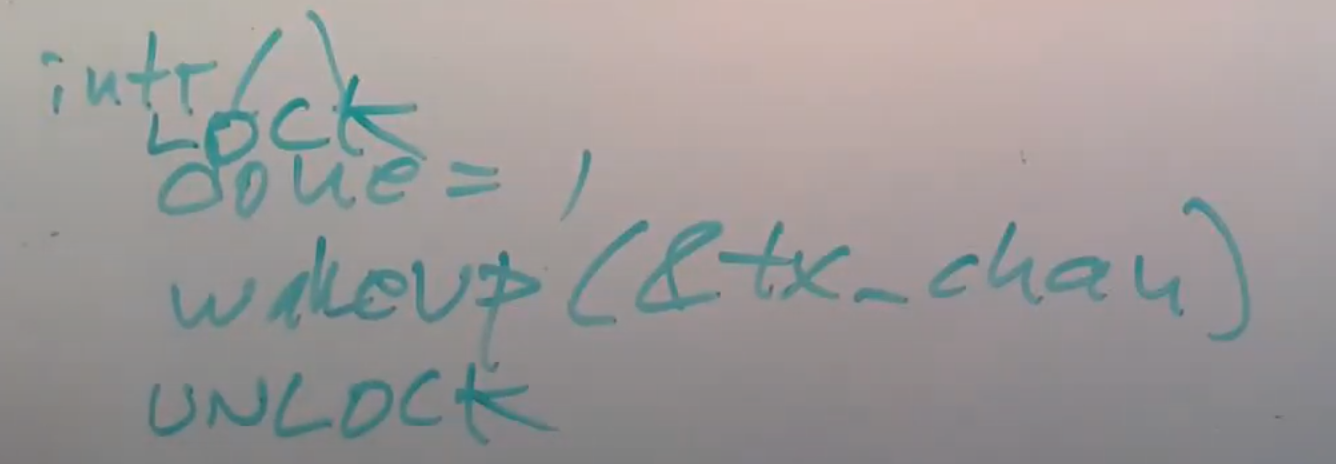 intr()
LOCK
done = 1
wakeup(&tx_chan)
UNLOCK